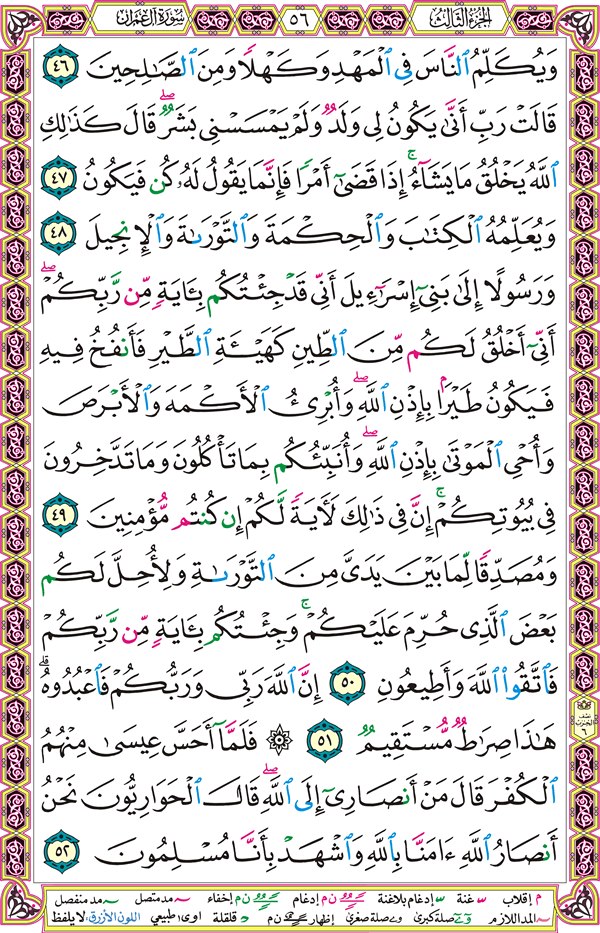 الجزء الثالث ٥٦ سورة آل عمران
وَيُكَلِّمُ ٱلنَّاسَ فِى ٱلْمَهْدِ وَكَهْلًا وَمِنَ ٱلصَّـٰلِحِينَ ٤٦
قَالَتْ رَبِّ أَنَّىٰ يَكُونُ لِى وَلَدٌ وَلَمْ يَمْسَسْنِى بَشَرٌ ۖ قَالَ كَذَٰلِكِ
ٱللَّهُ يَخْلُقُ مَا يَشَآءُ ۚ إِذَا قَضَىٰٓ أَمْرًا فَإِنَّمَا يَقُولُ لَهُۥ كُن فَيَكُونُ ٤٧
وَيُعَلِّمُهُ ٱلْكِتَـٰبَ وَٱلْحِكْمَةَ وَٱلتَّوْرَىٰةَ وَٱلْإِنجِيلَ ٤٨
وَرَسُولًا إِلَىٰ بَنِىٓ إِسْرَٰٓءِيلَ أَنِّى قَدْ جِئْتُكُم بِـَٔايَةٍ مِّن رَّبِّكُمْ ۖ
أَنِّىٓ أَخْلُقُ لَكُم مِّنَ ٱلطِّينِ كَهَيْـَٔةِ ٱلطَّيْرِ فَأَنفُخُ فِيهِ
فَيَكُونُ طَيْرًۢا بِإِذْنِ ٱللَّهِ ۖ وَأُبْرِئُ ٱلْأَكْمَهَ وَٱلْأَبْرَصَ
وَأُحْىِ ٱلْمَوْتَىٰ بِإِذْنِ ٱللَّهِ ۖ وَأُنَبِّئُكُم بِمَا تَأْكُلُونَ وَمَا تَدَّخِرُونَ
فِى بُيُوتِكُمْ ۚ إِنَّ فِى ذَٰلِكَ لَـَٔايَةً لَّكُمْ إِن كُنتُم مُّؤْمِنِينَ ٤٩
وَمُصَدِّقًا لِّمَا بَيْنَ يَدَىَّ مِنَ ٱلتَّوْرَىٰةِ وَلِأُحِلَّ لَكُم
بَعْضَ ٱلَّذِى حُرِّمَ عَلَيْكُمْ ۚ وَجِئْتُكُم بِـَٔايَةٍ مِّن رَّبِّكُمْ
فَٱتَّقُوا۟ ٱللَّهَ وَأَطِيعُونِ ٥٠ إِنَّ ٱللَّهَ رَبِّى وَرَبُّكُمْ فَٱعْبُدُوهُ ۗ
هَـٰذَا صِرَٰطٌ مُّسْتَقِيمٌ ٥١ ۞ فَلَمَّآ أَحَسَّ عِيسَىٰ مِنْهُمُ
ٱلْكُفْرَ قَالَ مَنْ أَنصَارِىٓ إِلَى ٱللَّهِ ۖ قَالَ ٱلْحَوَارِيُّونَ نَحْنُ
أَنصَارُ ٱللَّهِ ءَامَنَّا بِٱللَّهِ وَٱشْهَدْ بِأَنَّا مُسْلِمُونَ ٥٢
نصف
الحزب
٦
م إقلاب س غنة س إدغام بلاغنة ن م إدغام ن م إخفاء مد متصل مد منفصل
المد اللازم صلة كبرى صلة صغرى إظهار ن م قلقلة اوى طبيعي اللون الأزرق: لا يلفظ